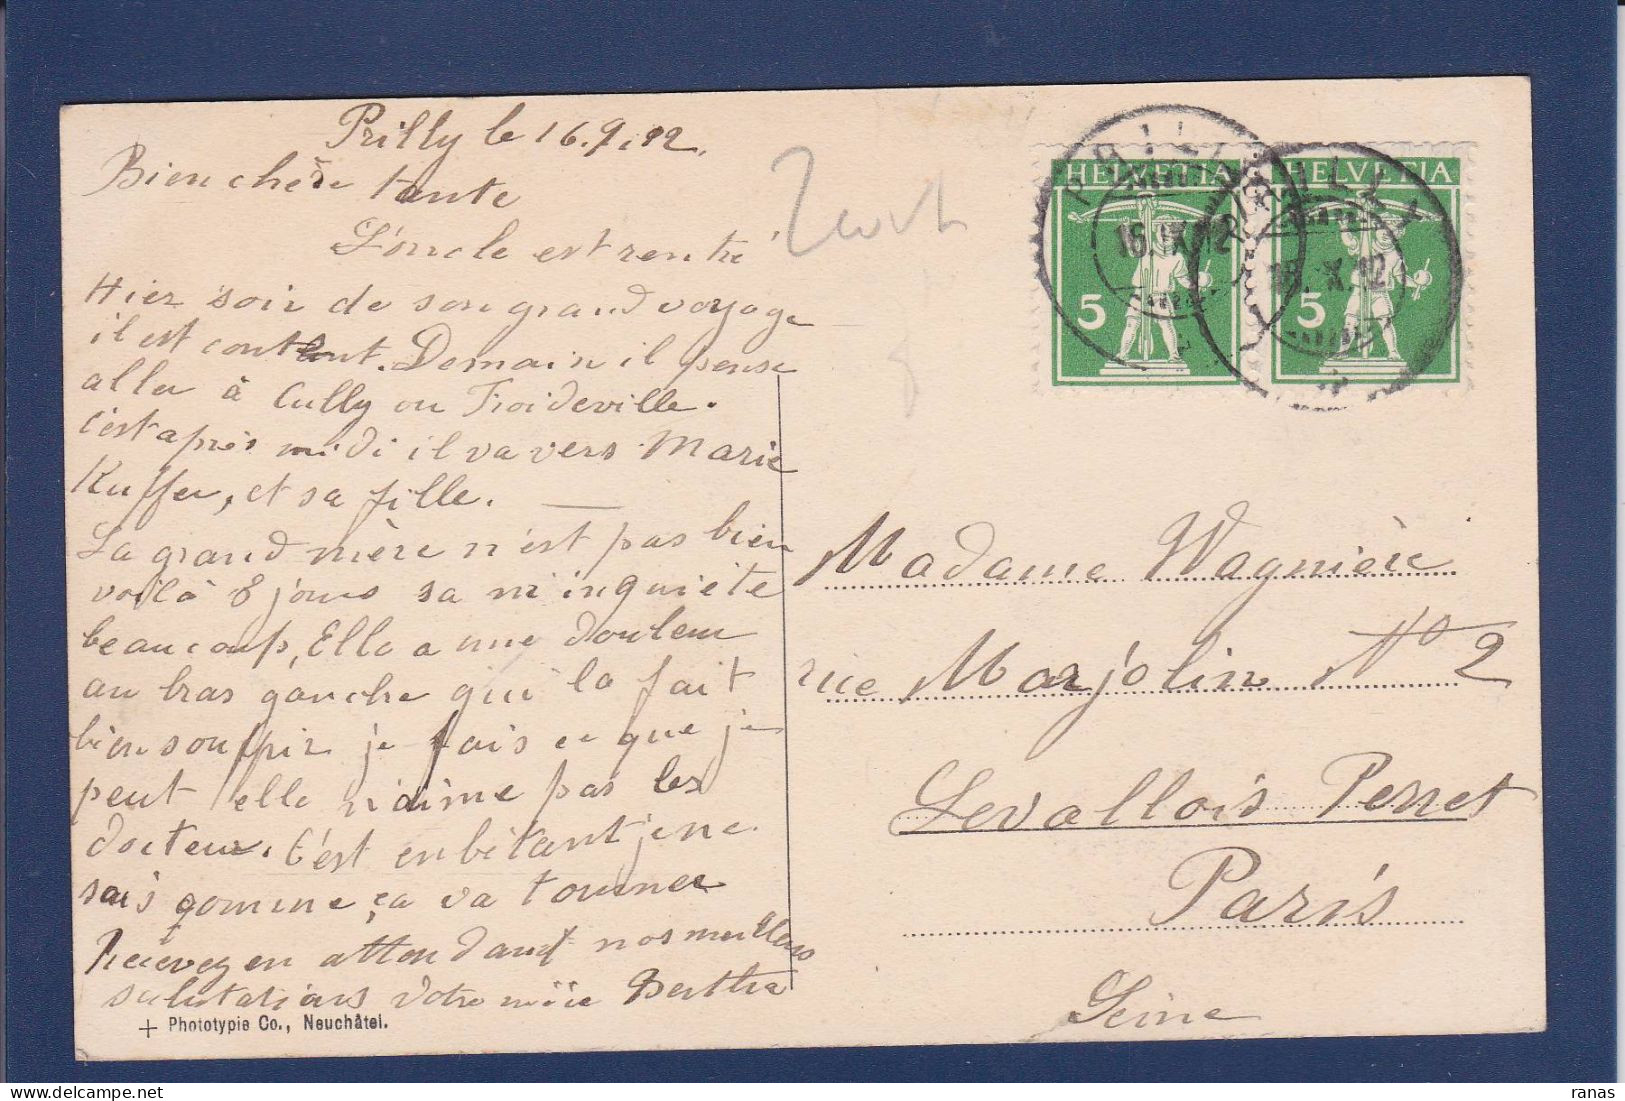 Prilly le 16.9.12.
Bien chère tante
L'oncle est rentré
Hier soir de son grand voyage
il est content. Demain il pense
aller à Cully ou Froideville.
C'est après midi il va vers Marie
Kuffer, et sa fille. —
La grand mère n'est pas bien
voilà 8 jours sa m'inquiète
beaucoup, Elle a une douleur
au bras gauche qui la fait
bien souffrir je fais ce que je
peut elle n'aime pas les
docteur. C'est enbêtant je ne
sais gomme ça va tourner
Recevez en attendant nos meilleurs
salutations votre nièce Bertha
+ Phototypie Co., Neuchâtel.
HELVETIA HELVETIA
PRILLY PRILLY
16.IX.12 16.IX.12
5 5
Madame Wagnière
rue Marjolin No 2
Levallois Perret
Paris
Seine
ranas